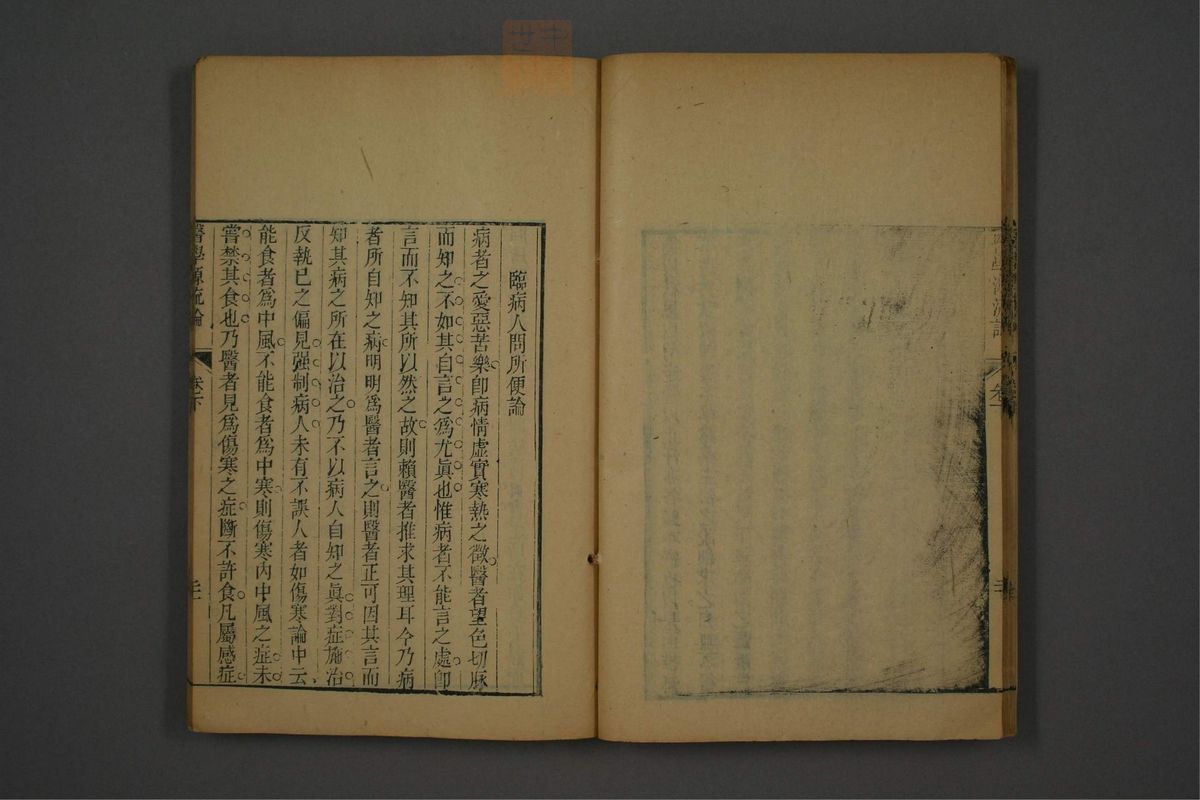 臨病人問所便論
病者之愛惡苦樂卽病情虛實寒熱之徵醫者望色切脉
而知之不如其自言之爲尤眞也惟病者不能言之處卽
言而不知其所以然之故則賴醫者推求其理耳今乃病
者所自知之病明明爲醫者言之則醫者正可因其言而
知其病之所在以治之乃不以病人自知之眞對症施治
反執已之偏見强制病人未有不誤人者如傷寒論中云
能食者爲中風不能食者爲中寒則傷寒內中風之症未
嘗禁其食也乃醫者見爲傷寒之症斷不許食凡屬感症
醫學源流論 卷下